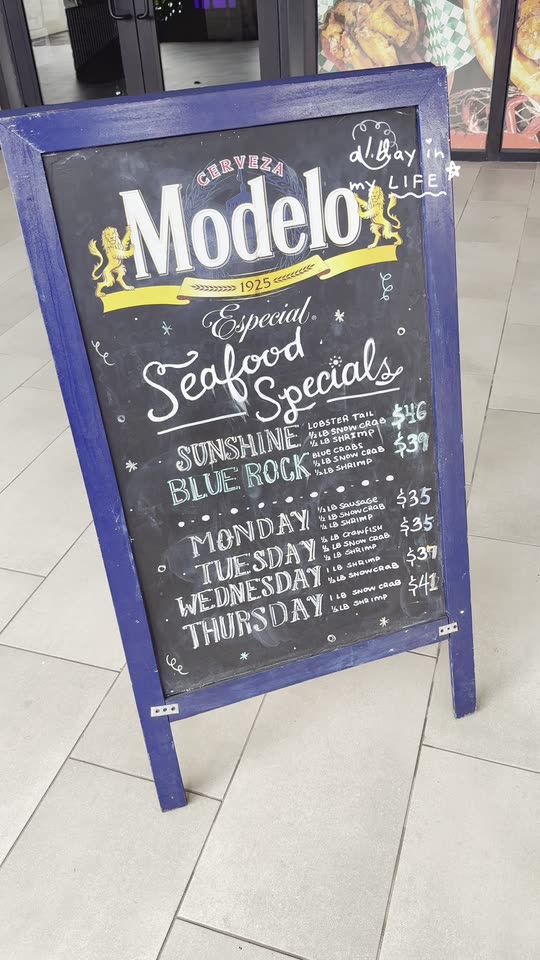 a day in
my LIFE
CERVEZA
Modelo
1925
Especial
Seafood
Specials
SUNSHINE
LOBSTER TAIL
½ LB SNOW CRAB
½ LB SHRIMP
$46
BLUE ROCK
BLUE CRABS
½ LB SNOW CRAB
½ LB SHRIMP
$39
MONDAY
½ LB SAUSAGE
½ LB SNOWCRAB
½ LB SHRIMP
$35
TUESDAY
½ LB CRAWFISH
½ LB SNOW CRAB
½ LB SHRIMP
$35
WEDNESDAY
1 LB SHRIMP
½ LB SNOWCRAB
$37
THURSDAY
1 LB SNOW CRAB
½ LB SHRIMP
$41